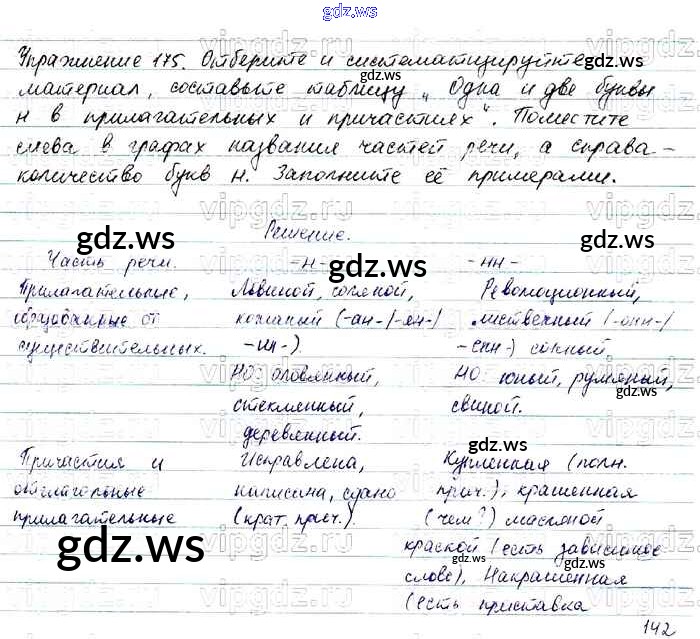 gdz.ws
Упражнение 175. Отберите и систематизируйте
материал, составьте таблицу „Одна и две буквы
н в прилагательных и причастиях". Поместите
слева в графах названия частей речи, а справа -
количество букв н. Заполните её примерами.
Решение.
Часть речи. -н- -нн-
Прилагательные, Львиной, соляной, Революционный,
образованные от кожаный (-ан-/-ян-/ лиственный (-онн-/
существительных. -ин-). -енн-) сонный,
НО: оловянный, НО: юный, румяный,
стеклянный, свиной.
деревянный.
Причастия и Исправлена, Купленная (полн.
отглагольные написана, сдано прич.), крашенная
прилагательные (крат. прич.). (чем?) масляной
краской (есть зависимое
слово), Накрашенная
(есть приставка
142
gdz.ws
gdz.ws
gdz.ws
gdz.ws
gdz.ws
gdz.ws
gdz.ws
gdz.ws
gdz.ws
gdz.ws
vipgdz.ru